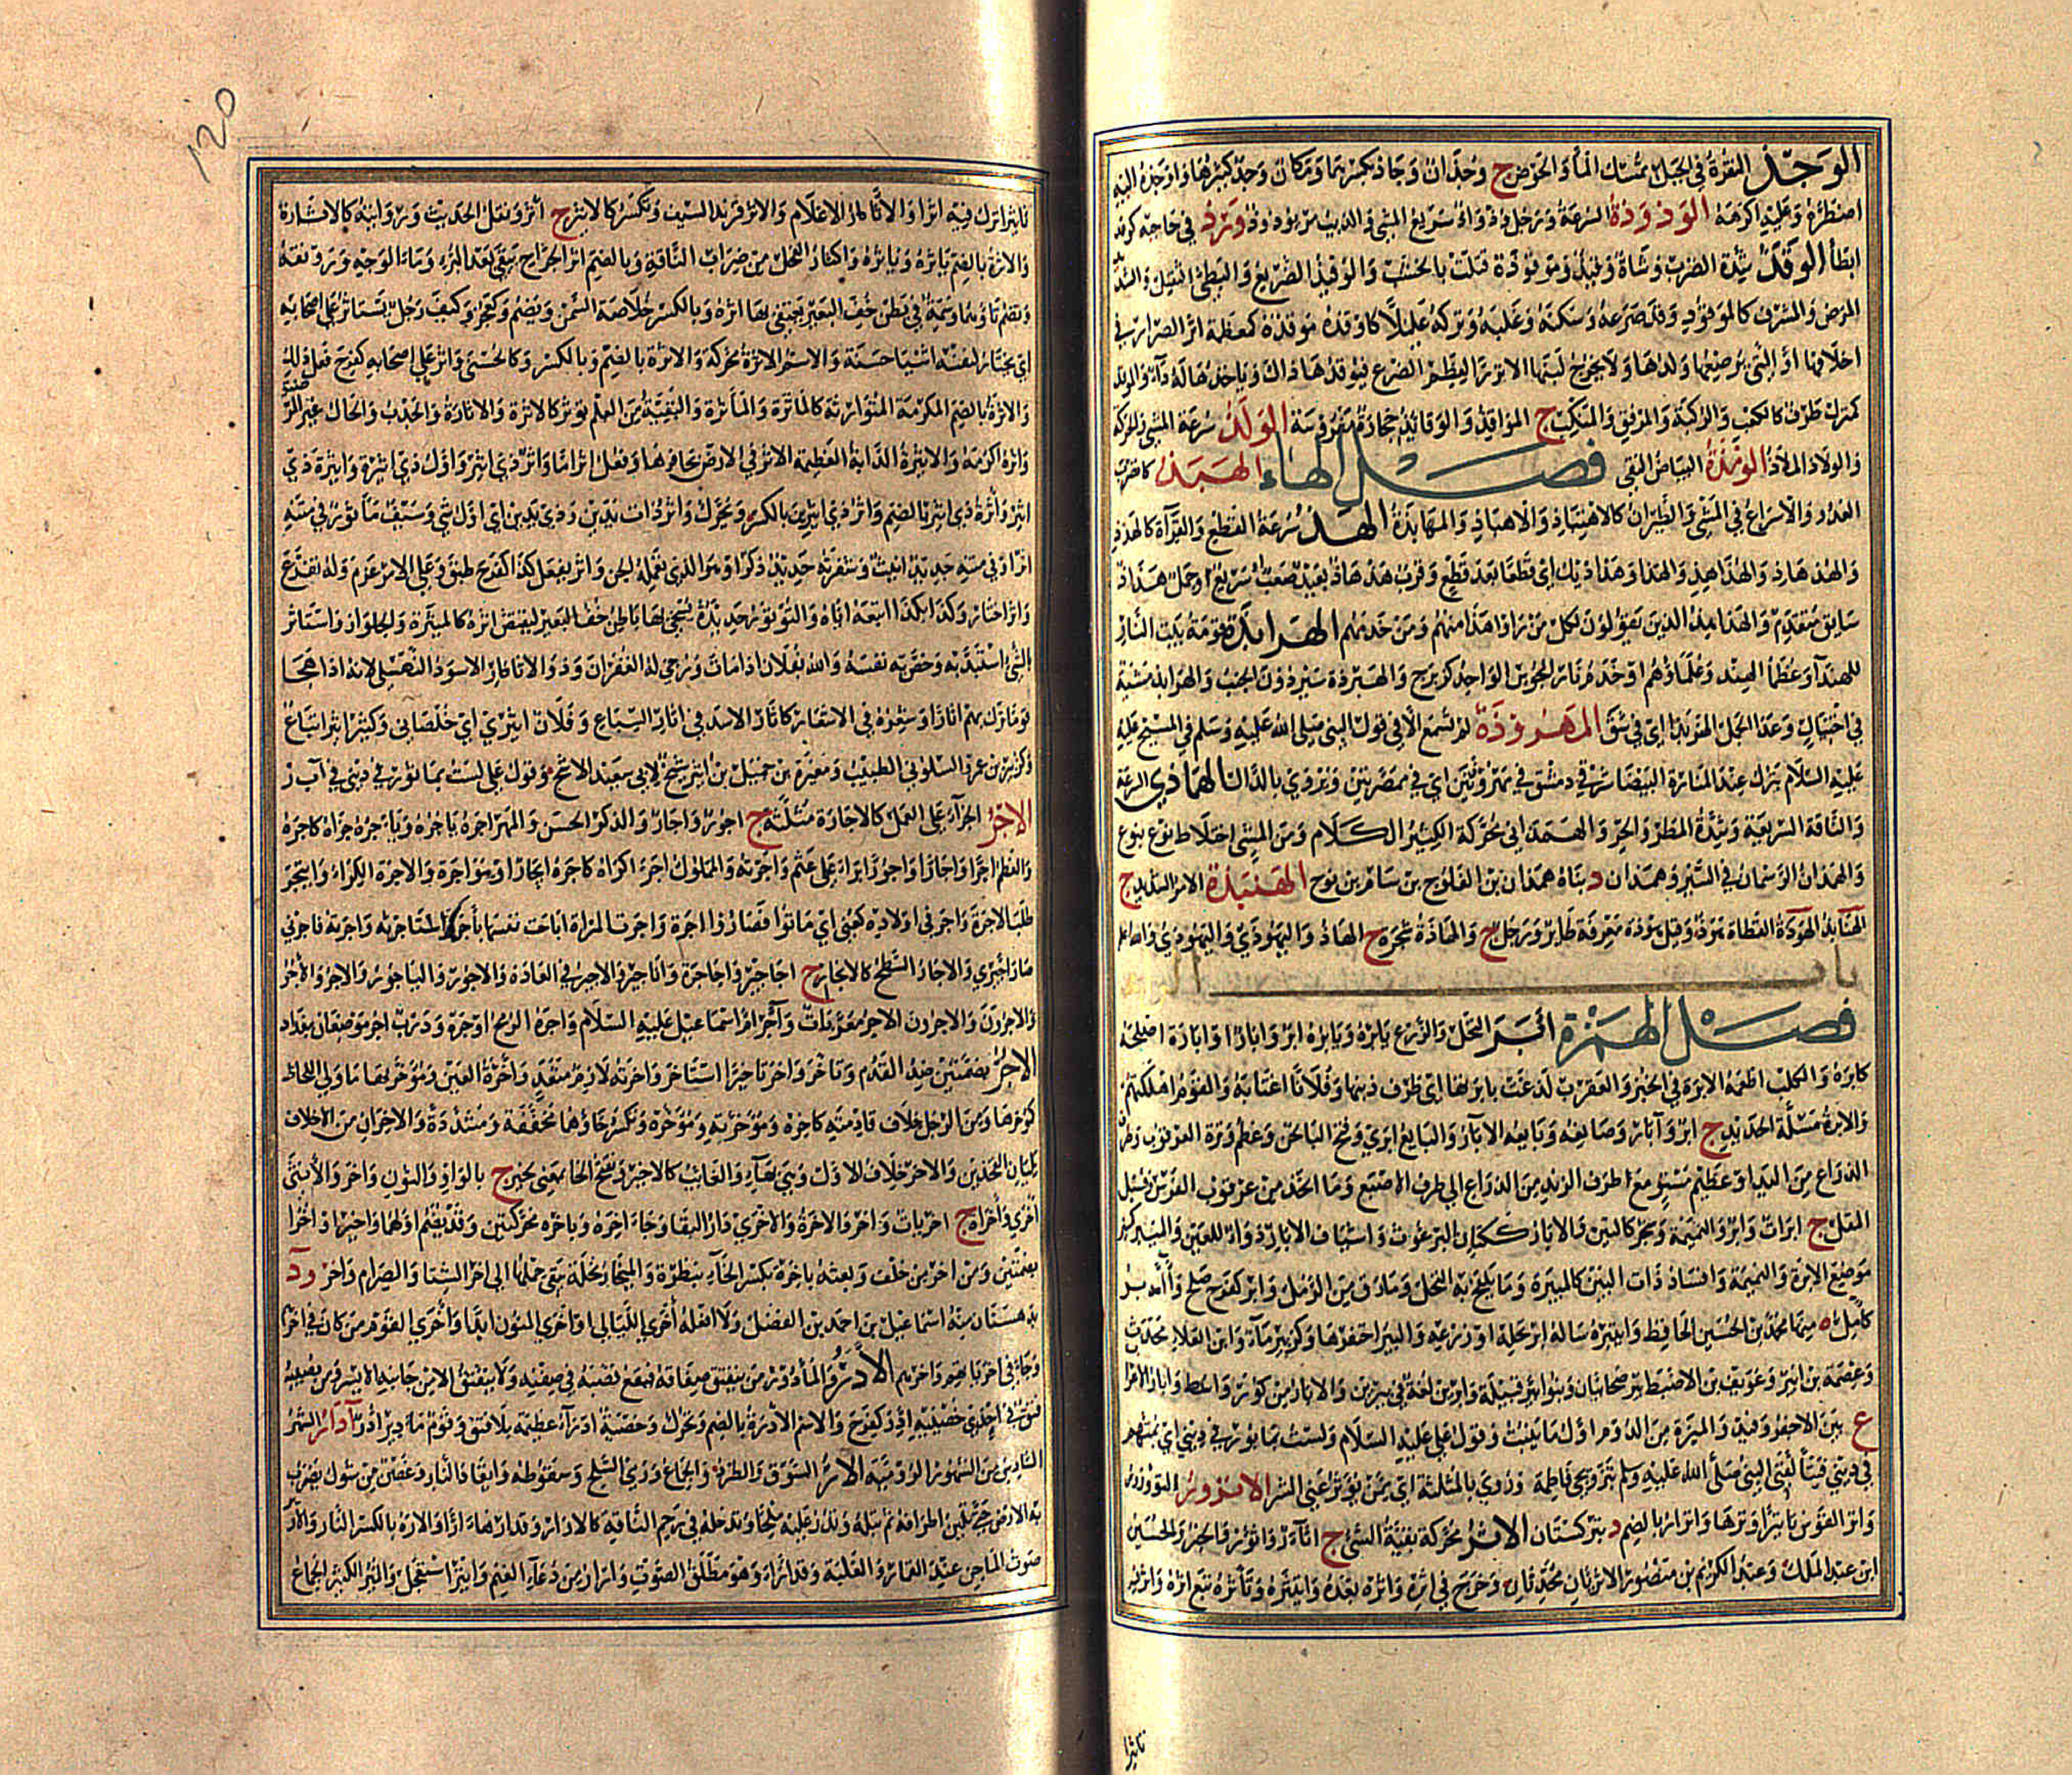 الوَجْذُ النقرة في الجبل تمسك الماء والحوض ج وجذان ووجاذ بكسرهما ومكان وجذ كثيرها واوجذه اليه
اضطره وعليه اكرهه الوذوذة السرعة ورجل وذواذ سريع المشي والذيب مر يوذوذ وَرَذَ في حاجته كوعد
ابطأ الوَقْذُ شدة الضرب وشاة وقيذ وموقوذة قتلت بالخشب والوقيذ الصريع والبطئ الثقيل والشديد
المرض والمشرف كالموقوذ وقذه صرعه وسكنه وغلبه وتركه عليلا كاوقذه وناقة موقذة كمعظمة اثر الصرار في
اخلافها او التي يرضعها ولدها ولا يخرج لبنها الا نزرا لعظم الضرع فيوقذها ذلك ويأخذها له داء والوقذ
كمنزل طرف كالكعب والركبة والمرفق والمنكب ج المواقذ والوقائذ حجارة مفروشة الوَلْذُ سرعة المشي والحركة
والولاذ الملاذ الومذة البياض النقي فصل الهاء الهبذ كالضرب
العدو والاسراع في المشي والطيران كالاهتباذ والاهباذ والمهابذة الهَذُّ سرعة القطع والقراءة كالهذذ
والهذاذ والهذاهذ والهذا وهذاذيك اي قطعا بعد قطع وقرب هذهاذ بعيد صعب او سريع وجمل هذاذ
سابق متقدم والهذاهيذ الذين يقولون لكل من رآوا هذا منهم ومن خدمهم الهرابذة قومة بيت النار
للهند او عظماء الهند وعلماؤهم او خدم نار المجوس الواحد كزبرج والهربذة سير دون الخبب والهربذى مشية
في اختيال وعدا الجمل الهربذى اي في شق المهروذة لم تسمع الا في قول النبي صلى الله عليه وسلم في المسيح عليه
عليه السلام ينزل عند المنارة البيضاء شرقي دمشق في مهروذتين اي في ممصرتين وتروى بالدال الهماذي السرعة
والناقة السريعة وشدة المطر والحر والهمذاني محركة الكثير الكلام ومن المشي اختلاط نوع بنوع
والهمذان الرسمان في السير وهمذان د بناه همذان بن الفلوج بن سام بن نوح الهنبذة الامر الشديد ج
الهنابذ الهوذة القطاة هوذ وقيل هوذة معرفة طائر ورجل ج والهاذة شجرة ج الهاذ واليهوذي واليهوذي والله اعلم
باب الراء
فصل الهمزة أبَرَ النخل والزرع يابره ويابره ابرا وابارا وابارة اصلحه
كابره والكلب اطعمه الابرة في الخبز والعقرب لدغت بابرتها اي طرف ذنبها وفلانا اغتابه والقوم اهلكهم
والابرة مسلة الحديد ج ابر وآبار وصانعه وبايعه الابار والبايع ابري وفتح الباء لحن وعظم وترة العرقوب وطرف
الذراع من اليد او عظيم مستو مع طرف الزند من الذراع الى طرف الاصبع وما انحد من عرقوب الفرس وفسيل
المقل ج ابرات وابر والنميمة وشجر كالتين والابار ككتان البرغوث واشياف الابار دواء للعين والمئبر كمنبر
موضع الابرة والنميمة وافساد ذات البين كالمئبرة وما يلقح به النخل وما رق من الرمل وابر كفرح صلح وآبر
كآمل ة منها محمد بن الحسين الحافظ وائتبره ساله ابر نخله او زرعه والبئر احتفرها وكزبير ماء وابن العلاء محدث
وعصمة بن ابير وعويف بن الاضبط بن ابير صحابيان وبنو ابير قبيلة وابرين لغة في يبرين والابار من كور واسط
ع بين الاجفر وفيد والميرة من الدوم اول ما ينبت وقول علي عليه السلام ولست بمابور في ديني اي بمتهم
في ديني فيتألفني النبي صلى الله عليه وسلم بتزويجي فاطمة وروي بالمثلثة اي ممن يؤثر عني الشر الاتْرور التؤرور
واتر القوس تاتيرا وترها واترار بالضم د بتركستان الأثَر محركة بقية الشيء ج آثار واثور والخبر والحسين
ابن عبد الملك وعبد الكريم بن منصور الاثريان محدثان وخرج في اثره واثره بعده وائتثره وتأثره تبع اثره واثر فيه
تاثيرا
تاثيرا ترك فيه اثرا والاثار الاعلام والاثر فرند السيف وتكسر كالاثير ج اثور ونقل الحديث وروايته كالاثارة
والاثرة بالضم ياثره وياثره واكثار الفحل من ضراب الناقة وبالضم اثر الجراح يبقى بعد البرء وماء الوجه ورونقه
وتضم ثاؤهما وسمة في بطن خف البعير يقتفى بها اثره وبالكسر خلاصة السمن ويضم وكعجز وكتف رجل يستاثر على اصحابه
اي يختار لنفسه اشياء حسنة والاسم الاثرة محركة والاثرة بالضم وبالكسر وكالحسنى واثر على اصحابه كفرح فعل ذلك
والاثرة بالضم المكرمة المتوارثة كالماثرة والمأثرة والبقية من العلم تؤثر كالاثرة والاثارة والجدب والحال غير المرضية
وآثره اكرمه والاثيرة الدابة العظيمة الاثر في الارض بحافرها وفعل آثرا ما واثر ذي اثير واول ذي اثيرة واثيرة ذي
اثير واثرة ذي اثير بالضم واثر ذي اثيرين بالكسر ويحرك واثر ذات يدين وذي يدين اي اول شيء وسيف مأثور في متنه
اثر او في متنه حديد انيث وشفرته حديد ذكر او هو الذي يعمله الجن واثر يفعل كذا كفرح طفق وعلى الامر عزم وله تفرغ
وآثر اختار وكذا بكذا اتبعه اياه والتؤثور حديدة يسحى بها باطن خف البعير ليقتص اثره كالميثرة والجلواز واستاثر
بالشيء استبد به وخص به نفسه والله بفلان اذا مات ورجي له الغفران وذو الاثار الاسود النهشلي لانه اذا هجا
قوما ترك بهم اثارا وشعره في الاشعار كاثار الاسد في اثار السباع وفلان اثيري اي خلصاني وكثير اثير اتباع
وكزبير بن عمرو السكوني الطبيب ومغيرة بن جميل بن اثير شيخ لابي سعيد الاشج وقول علي لست بماثور في ديني في ا ب ر
الأجْرُ الجزاء على العمل كالاجارة مثلثة ج اجور واجار والذكر الحسن والمهر اجره ياجره وياجره جزاه كاجره
والعظم اجرا واجارا واجورا برا على عثم واجرته والمملوك اجرا اكراه كآجره ايجارا ومؤاجرة والاجرة الكراء وائتجر
طلب الاجرة واجر في اولاده كعني اي ماتوا فصاروا اجره وآجرت المراة اباحت نفسها باجر واستاجرته وآجرته فاجرني
صار اجيري والاجار السطح كالانجار ج اجاجير واجاجرة واناجير والاجير في العادة والآجور والياجور والآجر والأجر
والآجرون والآجرون الآجر معربات وآجر ام اسماعيل عليه السلام وآجره الرمح اوجره ودرب آجر موضعان ببغداد
الأخُرُ بضمتين ضد القدم وتاخر واخر تاخيرا استاخر واخرته لازم متعد وآخرة العين ومؤخرتها ما ولي اللحاظ
كمؤخرها ومن الرحل خلاف قادمته كآخره ومؤخره ومؤخرته وتكسر خاؤهما مخففة ومشددة والاخران من الاخلاف
يليان الفخذين والآخر خلاف الاول وهي بهاء والغائب كالاخير وبفتح الخاء بمعنى غير ج بالواو والنون واخر والانثى
اخرى واخراة ج اخريات واخر والآخرة والاخرى دار البقاء وجاء اخرة وباخرة محركتين وقد يضم اولهما واخيرا واخرا
بضمتين ومن اخر من خلف وبعته باخرة بكسر الخاء بنظرة والمئخار نخلة يبقى حملها الى آخر الشتاء والصرام وآخر ود
بدهستان منه اسماعيل بن احمد بن الفضل ولا افعله اخرى الليالي او اخرى المنون ابدا واخرى القوم من كان في آخرهم
وجاء في اخرياتهم واخرهم الأدَرُ والمأدور من ينفتق صفاقه فيقع قصبه في صفنه ولا ينفتق الا من جانبه الايسر او من يصيبه
فتق في احدى خصييه ادر كفرح والاسم الادرة بالضم وتحرك وخصية ادراء عظيمة بلا فتق وقوم مآدير آدار الشهر
السادس من الشهور الرومية الأرُّ السوق والطرد والجماع ورمي السلح وسقوطه وايقاد النار وغصن من شوك يضرب
به الارض حتى تلين اطرافه ثم تبله وتذر عليه ملحا وتدخله في رحم الناقة كالارار وقد ارها ارا والارة بالكسر النار والار
صوت الماجن عند القمار والغلبة وقد ار او هو مطلق الصوت وارار من دعاء الغنم وائتر استعجل والمئر الكثير الجماع
١٢٥